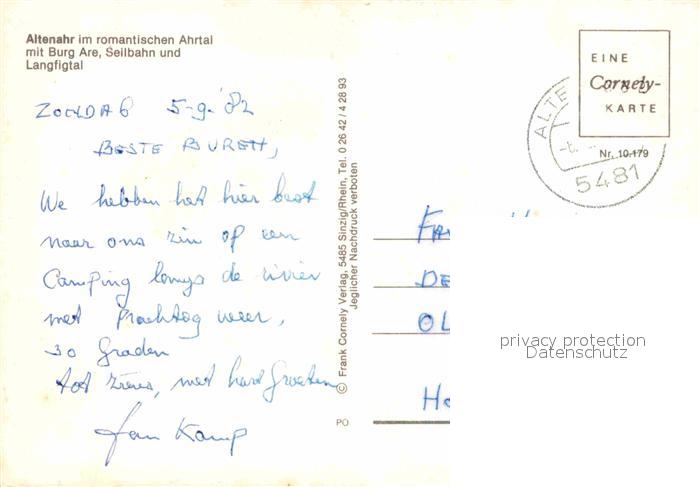 Altenahr im romantischen Ahrtal
mit Burg Are, Seilbahn und
Langfigtal
ZONDAG 5-9-'82
BESTE BUREN,
We hebben het hier best
naar ons zin op een
Camping langs de rivier
met Prachtig weer,
30 Graden
tot ziens, met hart Groeten
Jan Kamp
© Frank Cornely Verlag, 5485 Sinzig/Rhein, Tel. 0 26 42 / 4 28 93
Jeglicher Nachdruck verboten
PO
EINE
Cornely-
KARTE
Nr. 10.179
ALTE
5481
FA
DE
OL
H
privacy protection
Datenschutz